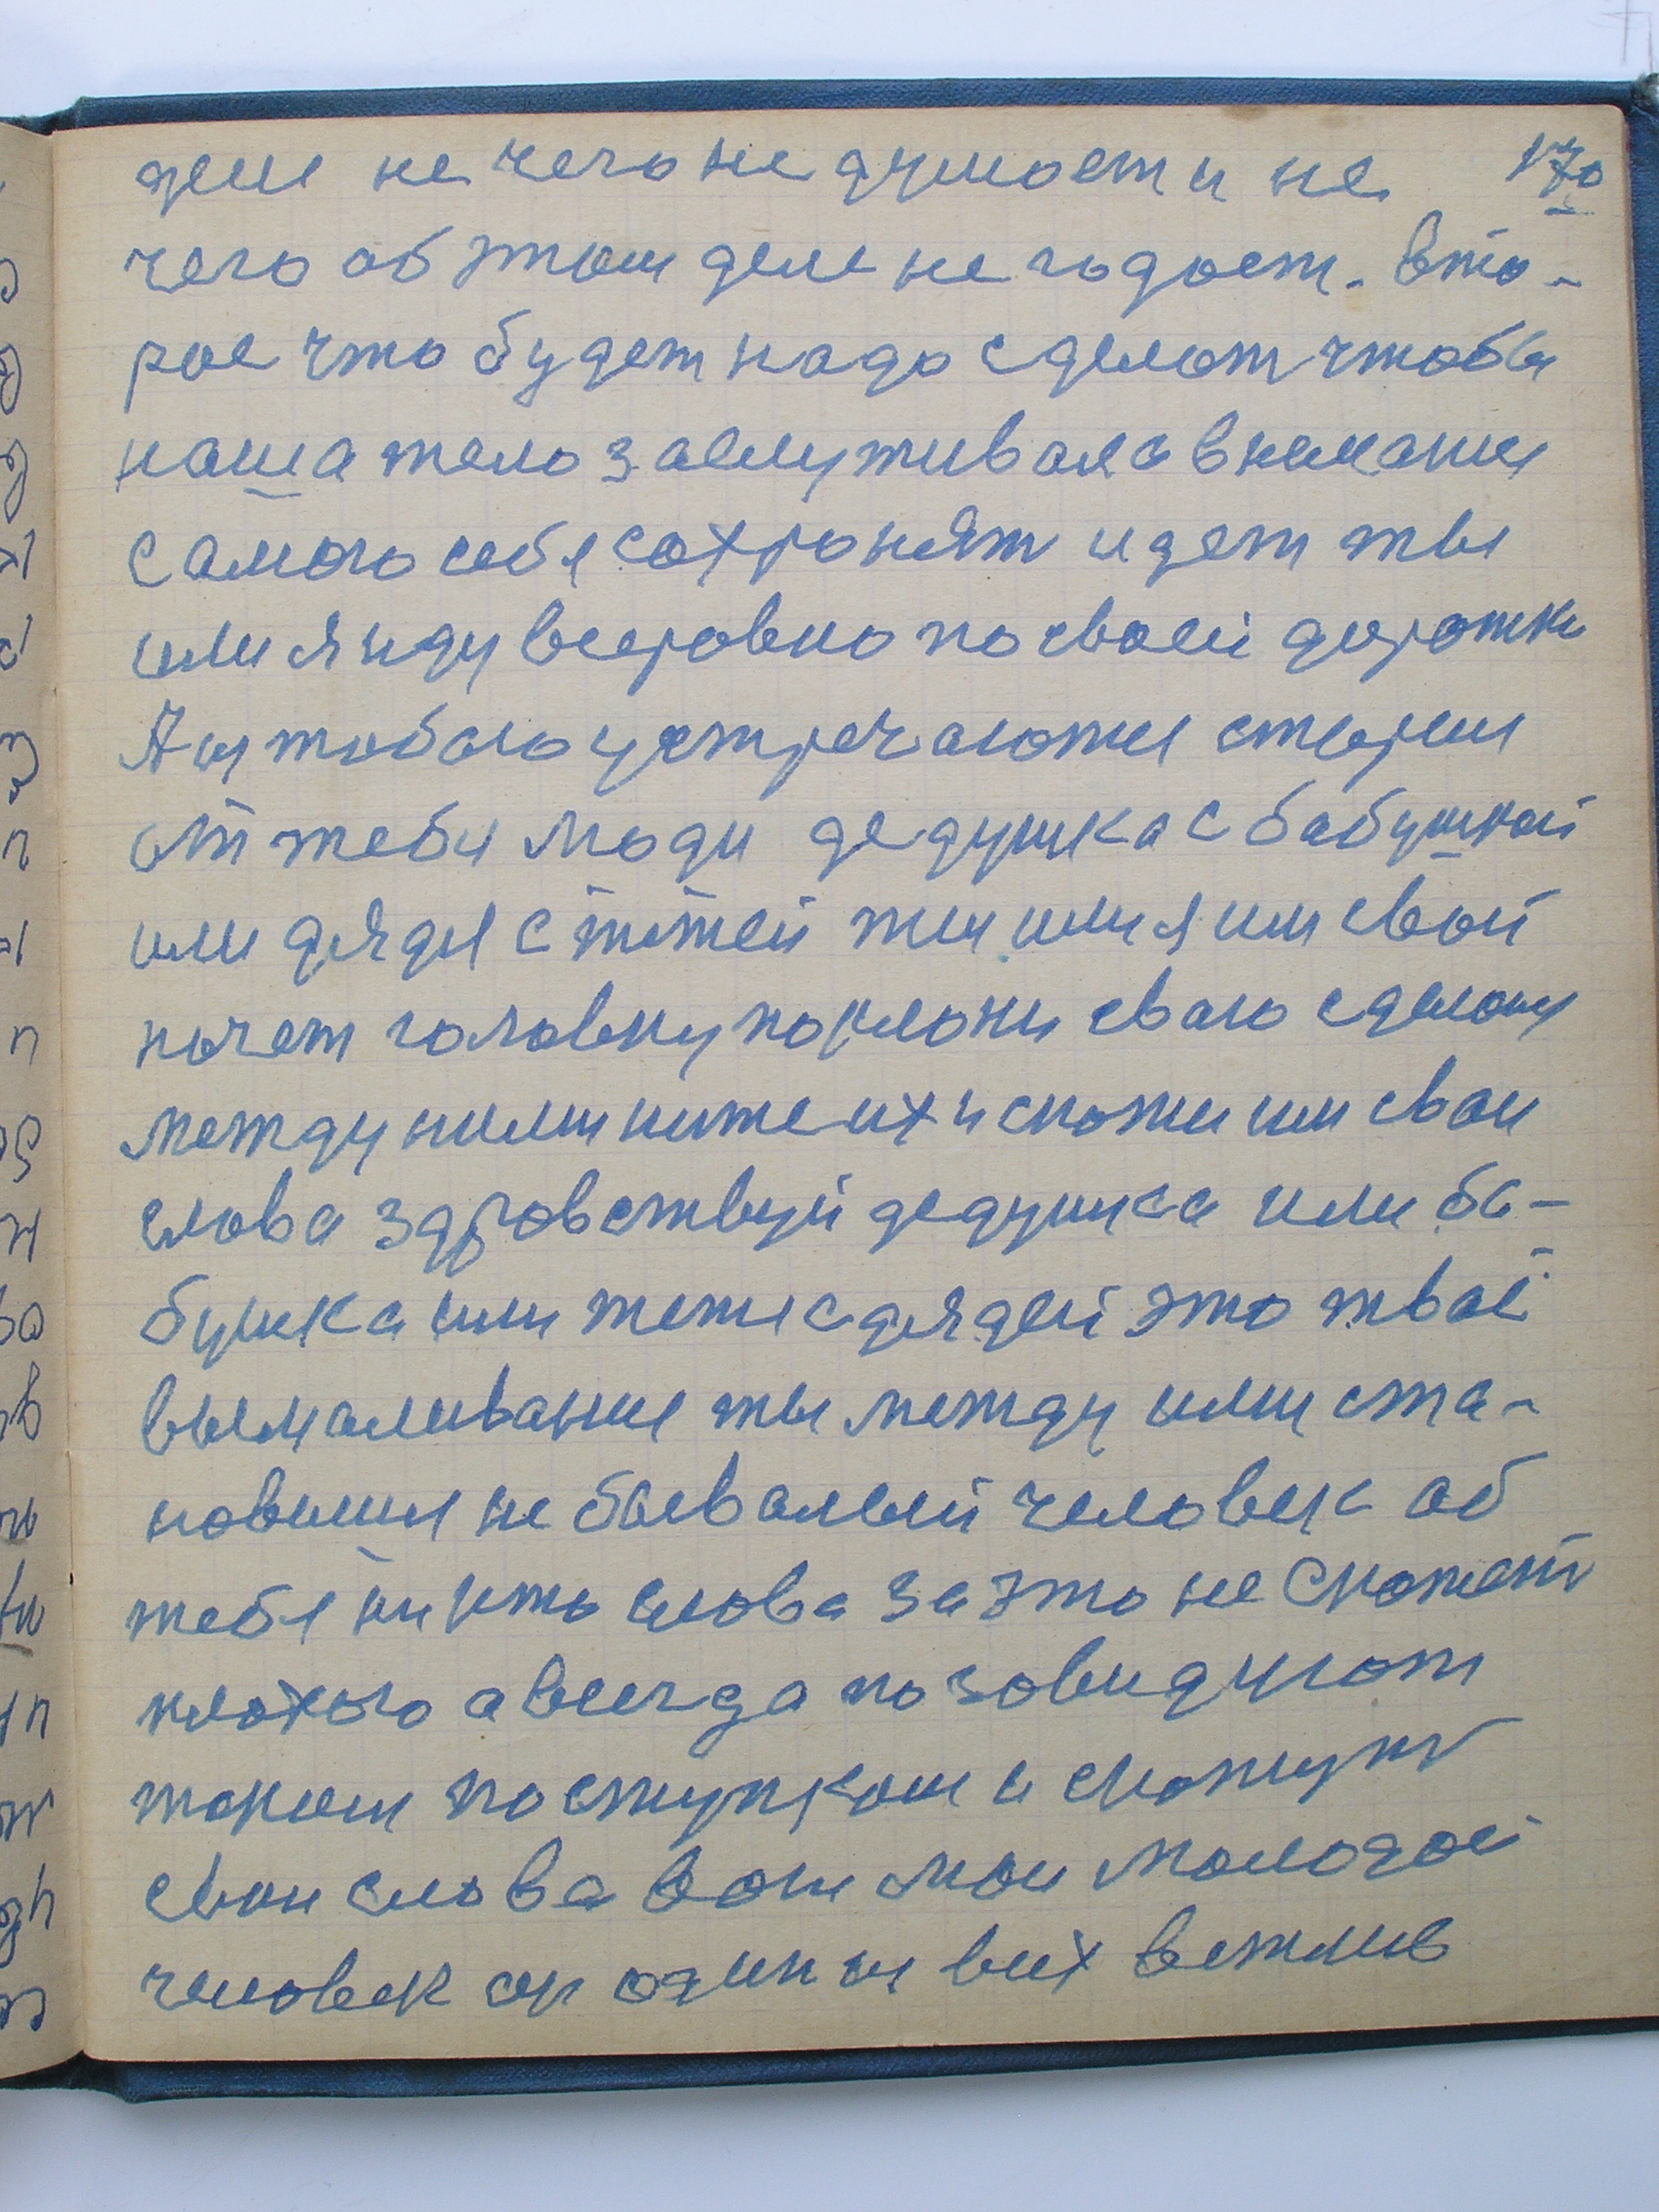 деле не чего не думоет и не 170
чего об этом деле не годоет. Вто-
рое что будет надо сделот чтобы
наша тело заслуживала внемание
самого себя сохронят идеш ты
или я иду всеровно по своей дорожки
А из тобою устречаютси старши
от тебя люди дедушка с бабушкой
или дядя с тётей ты или я им свой
почет головку поклони сваю сделоиу
между ними ниже их и скожи им свои
слова здровствуй дедушка или ба-
бушка или тетя с дядей это твоё
вымаливание ты между ими ста-
новишся не бывалый человек об
тебя ни кто слова за это не скожет
плохого а всегда позовидуют
таким поступком и скожут
свои слова вот мои молодой
человек он один из всих вежлив